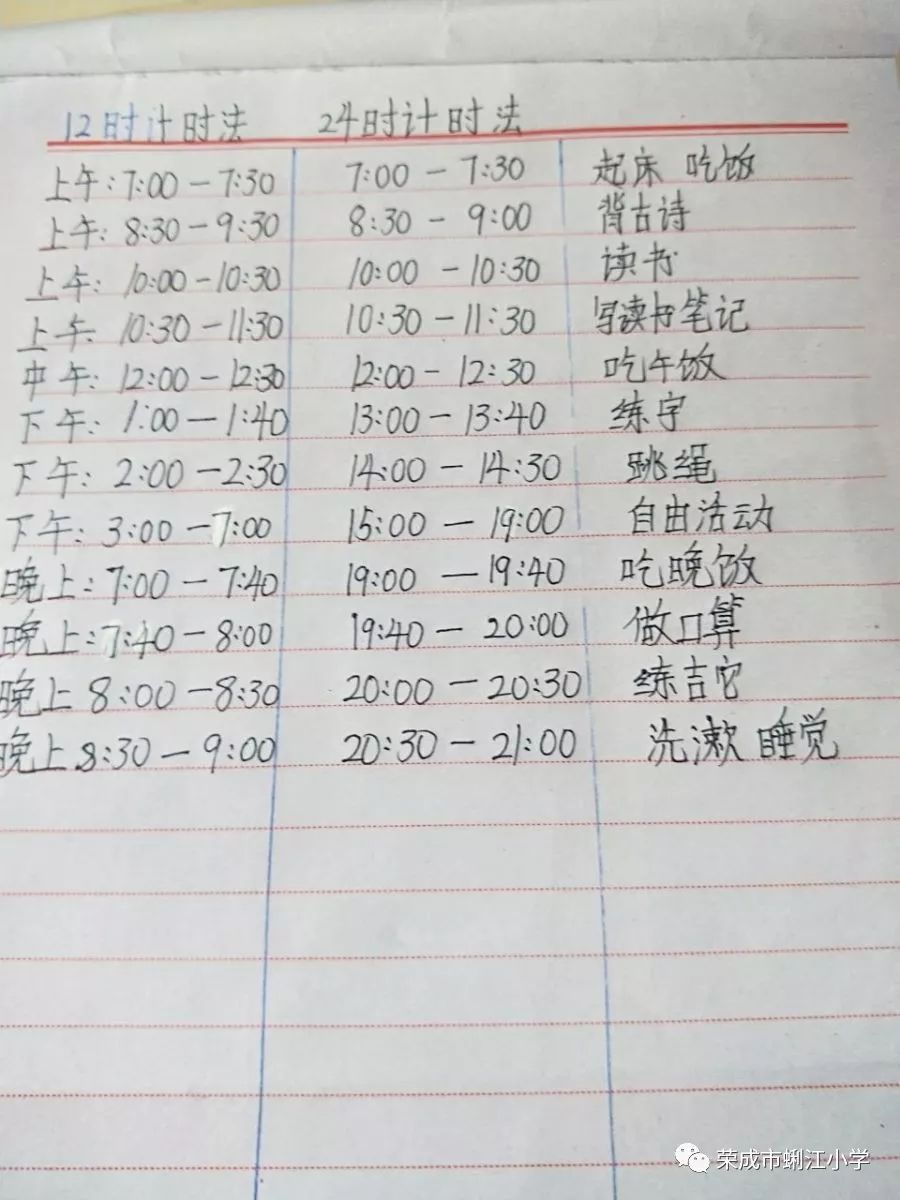 12时计时法 24时计时法
上午:7:00-7:30 7:00-7:30 起床 吃饭
上午:8:30-9:30 8:30-9:00 背古诗
上午:10:00-10:30 10:00-10:30 读书
上午:10:30-11:30 10:30-11:30 写读书笔记
中午:12:00-12:30 12:00-12:30 吃午饭
下午:1:00-1:40 13:00-13:40 练字
下午:2:00-2:30 14:00-14:30 跳绳
下午:3:00-7:00 15:00-19:00 自由活动
晚上:7:00-7:40 19:00-19:40 吃晚饭
晚上:7:40-8:00 19:40-20:00 做口算
晚上8:00-8:30 20:00-20:30 练吉它
晚上8:30-9:00 20:30-21:00 洗漱 睡觉
荣成市蜊江小学